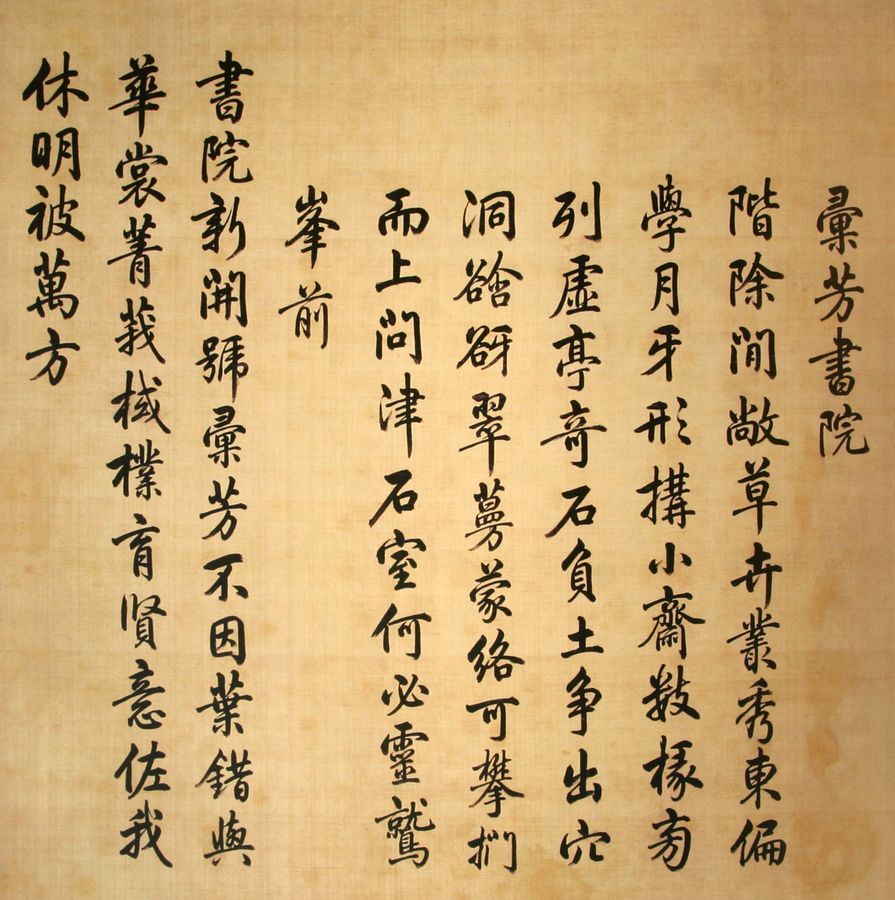 彙芳書院
階除閒敞草卉叢秀東偏
學月牙形搆小齋數椽旁
列虛亭奇石負土爭出穴
洞谽谺翠蔓蒙絡可攀捫
而上問津石室何必靈鷲
峯前
書院新開號彙芳不因葉錯與
華裳菁莪棫樸育賢意佐我
休明被萬方